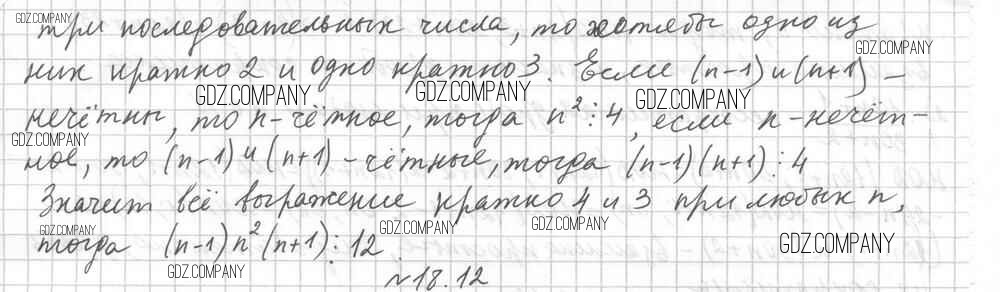 три последовательных числа, то хотябы одно из
них кратно 2 и одно кратно 3. Если (n-1) и (n+1) –
нечётны, то n-чётное, тогда n²⋮4, если n-нечёт-
ное, то (n-1) и (n+1) – чётные, тогда (n-1)(n+1)⋮4
Значит всё выражение кратно 4 и 3 при любых n,
тогда (n-1)n²(n+1)⋮12
№18.12
GDZ.COMPANY
GDZ.COMPANY
GDZ.COMPANY
GDZ.COMPANY
GDZ.COMPANY
GDZ.COMPANY
GDZ.COMPANY
GDZ.COMPANY
GDZ.COMPANY
GDZ.COMPANY
GDZ.COMPANY